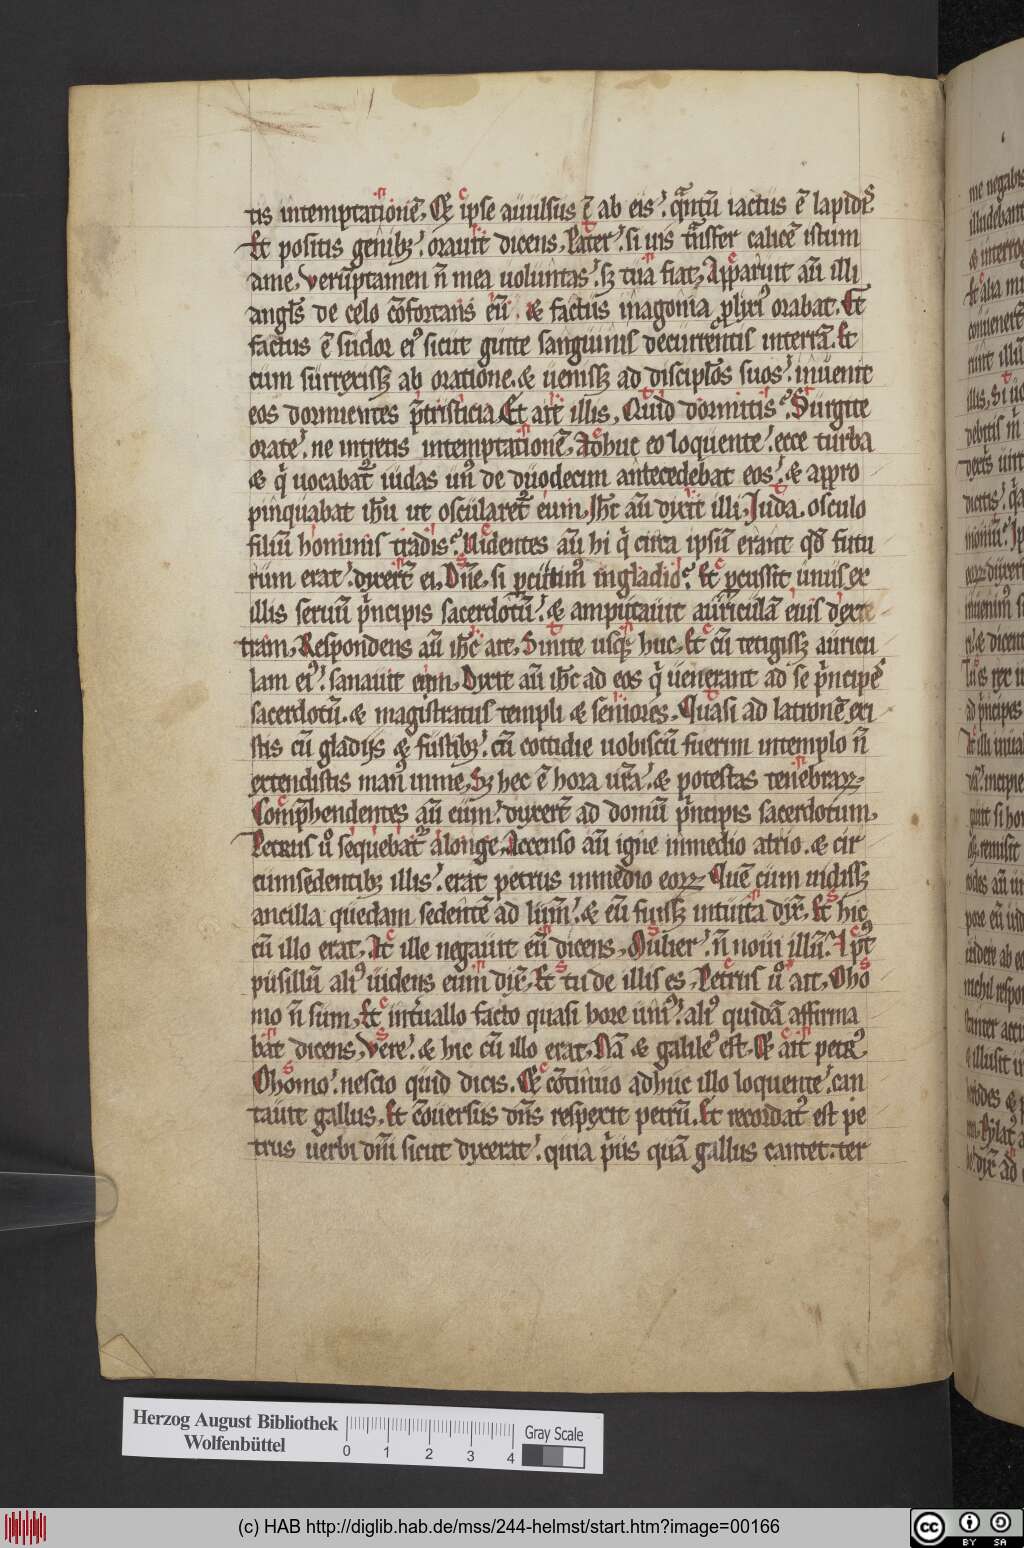 tis intemptationē. Et ipse auulsus ē ab eis. q̄ntū iactus ē lapidis
Et positis genibꝫ. orauit dicens. Pater. si uis trāsfer calicē istum
ame. Veruptamen n̄ mea uoluntas. sꝫ tua fiat. Apparuit aū illi
angls̄ de celo cōfortans eū. & factus inagonia plixiꝰ orabat. Et
factus ē sudor eiꝰ sicut gutte sanguinis decurrentis interrā. Et
cum surrexissꝫ ab oratione. & uenissꝫ ad discipl̄os suos. inuenit
eos dormientes p̄tristicia. Et ait illis. Quid dormitis. Surgite
orate. ne intretis intemptationē. Adhuc eo loquente. ecce turba
& q̇ uocabat᷑ iudas unꝰ de duodecim antecedebat eos. & appro
pinquabat ih̄u ut oscularet᷑ eum. Ih̄c aū dixit illi. Iuda. osculo
filiū hominis tradis. Videntes aū hi q̇ circa ipsū erant qd̄ futu
rum erat. dixert̄ ei. Dn̄e. si pcutimꝰ ingladio. Et pcussit unus ex
illis seruū ṗncipis sacerdotū. & amputauit auriculā eius dexte
tram. Respondens aū ih̄c ait. Sinite usqꝫ huc. Et cū tetigissꝫ auricu
lam eiꝰ. sanauit eum. Dixit aū ih̄c ad eos q̇ uenerant ad se ṗncipes
sacerdotū. & magistratus templi & seniores. Quasi ad latronē exi
stis cū gladijs & fustibꝫ. cū cottidie uobiscū fuerim intemplo n̄
extendistis manꝰ inme. Sꝫ hec ē hora ur̄a. & potestas tenebraꝝ.
Comp̄hendentes aū eum. duxert̄ ad domū ṗncipis sacerdotum.
Petrus u̇o sequebat᷑ alonge. Accenso aū igne inmedio atrio. & cir
cumsedentibꝫ illis. erat petrus inmedio eoꝝ. Quē cum uidissꝫ
ancilla quedam sedentē ad lum̄. & eū fuissꝫ intuita dix̄. Et hic
cū illo erat. At ille negauit eū dicens. Mulier. n̄ noui illū. Et pꝰt
pusillū aliꝰ uidens eum dix̄. Et tu de illis es. Petrus u̇o ait. Oho
mo n̄ sum. Et int̄uallo facto quasi hore uniꝰ. aliꝰ quidā affirma
bat dicens. Vere. & hic cū illo erat. Nā & galileꝰ est. Et ait petrꝰ.
Ohomo. nescio quid dicis. Et cōtinuo adhuc illo loquente. can
tauit gallus. Et cōuersus dn̄s respexit petrū. Et recordatꝰ est pe
trus uerbi dn̄i sicut dixerat. quia ṗus quā gallus cantet. ter
Herzog August Bibliothek
Wolfenbüttel
0 1 2 3 4
Gray Scale
(c) HAB http://diglib.hab.de/mss/244-helmst/start.htm?image=00166
cc BY SA